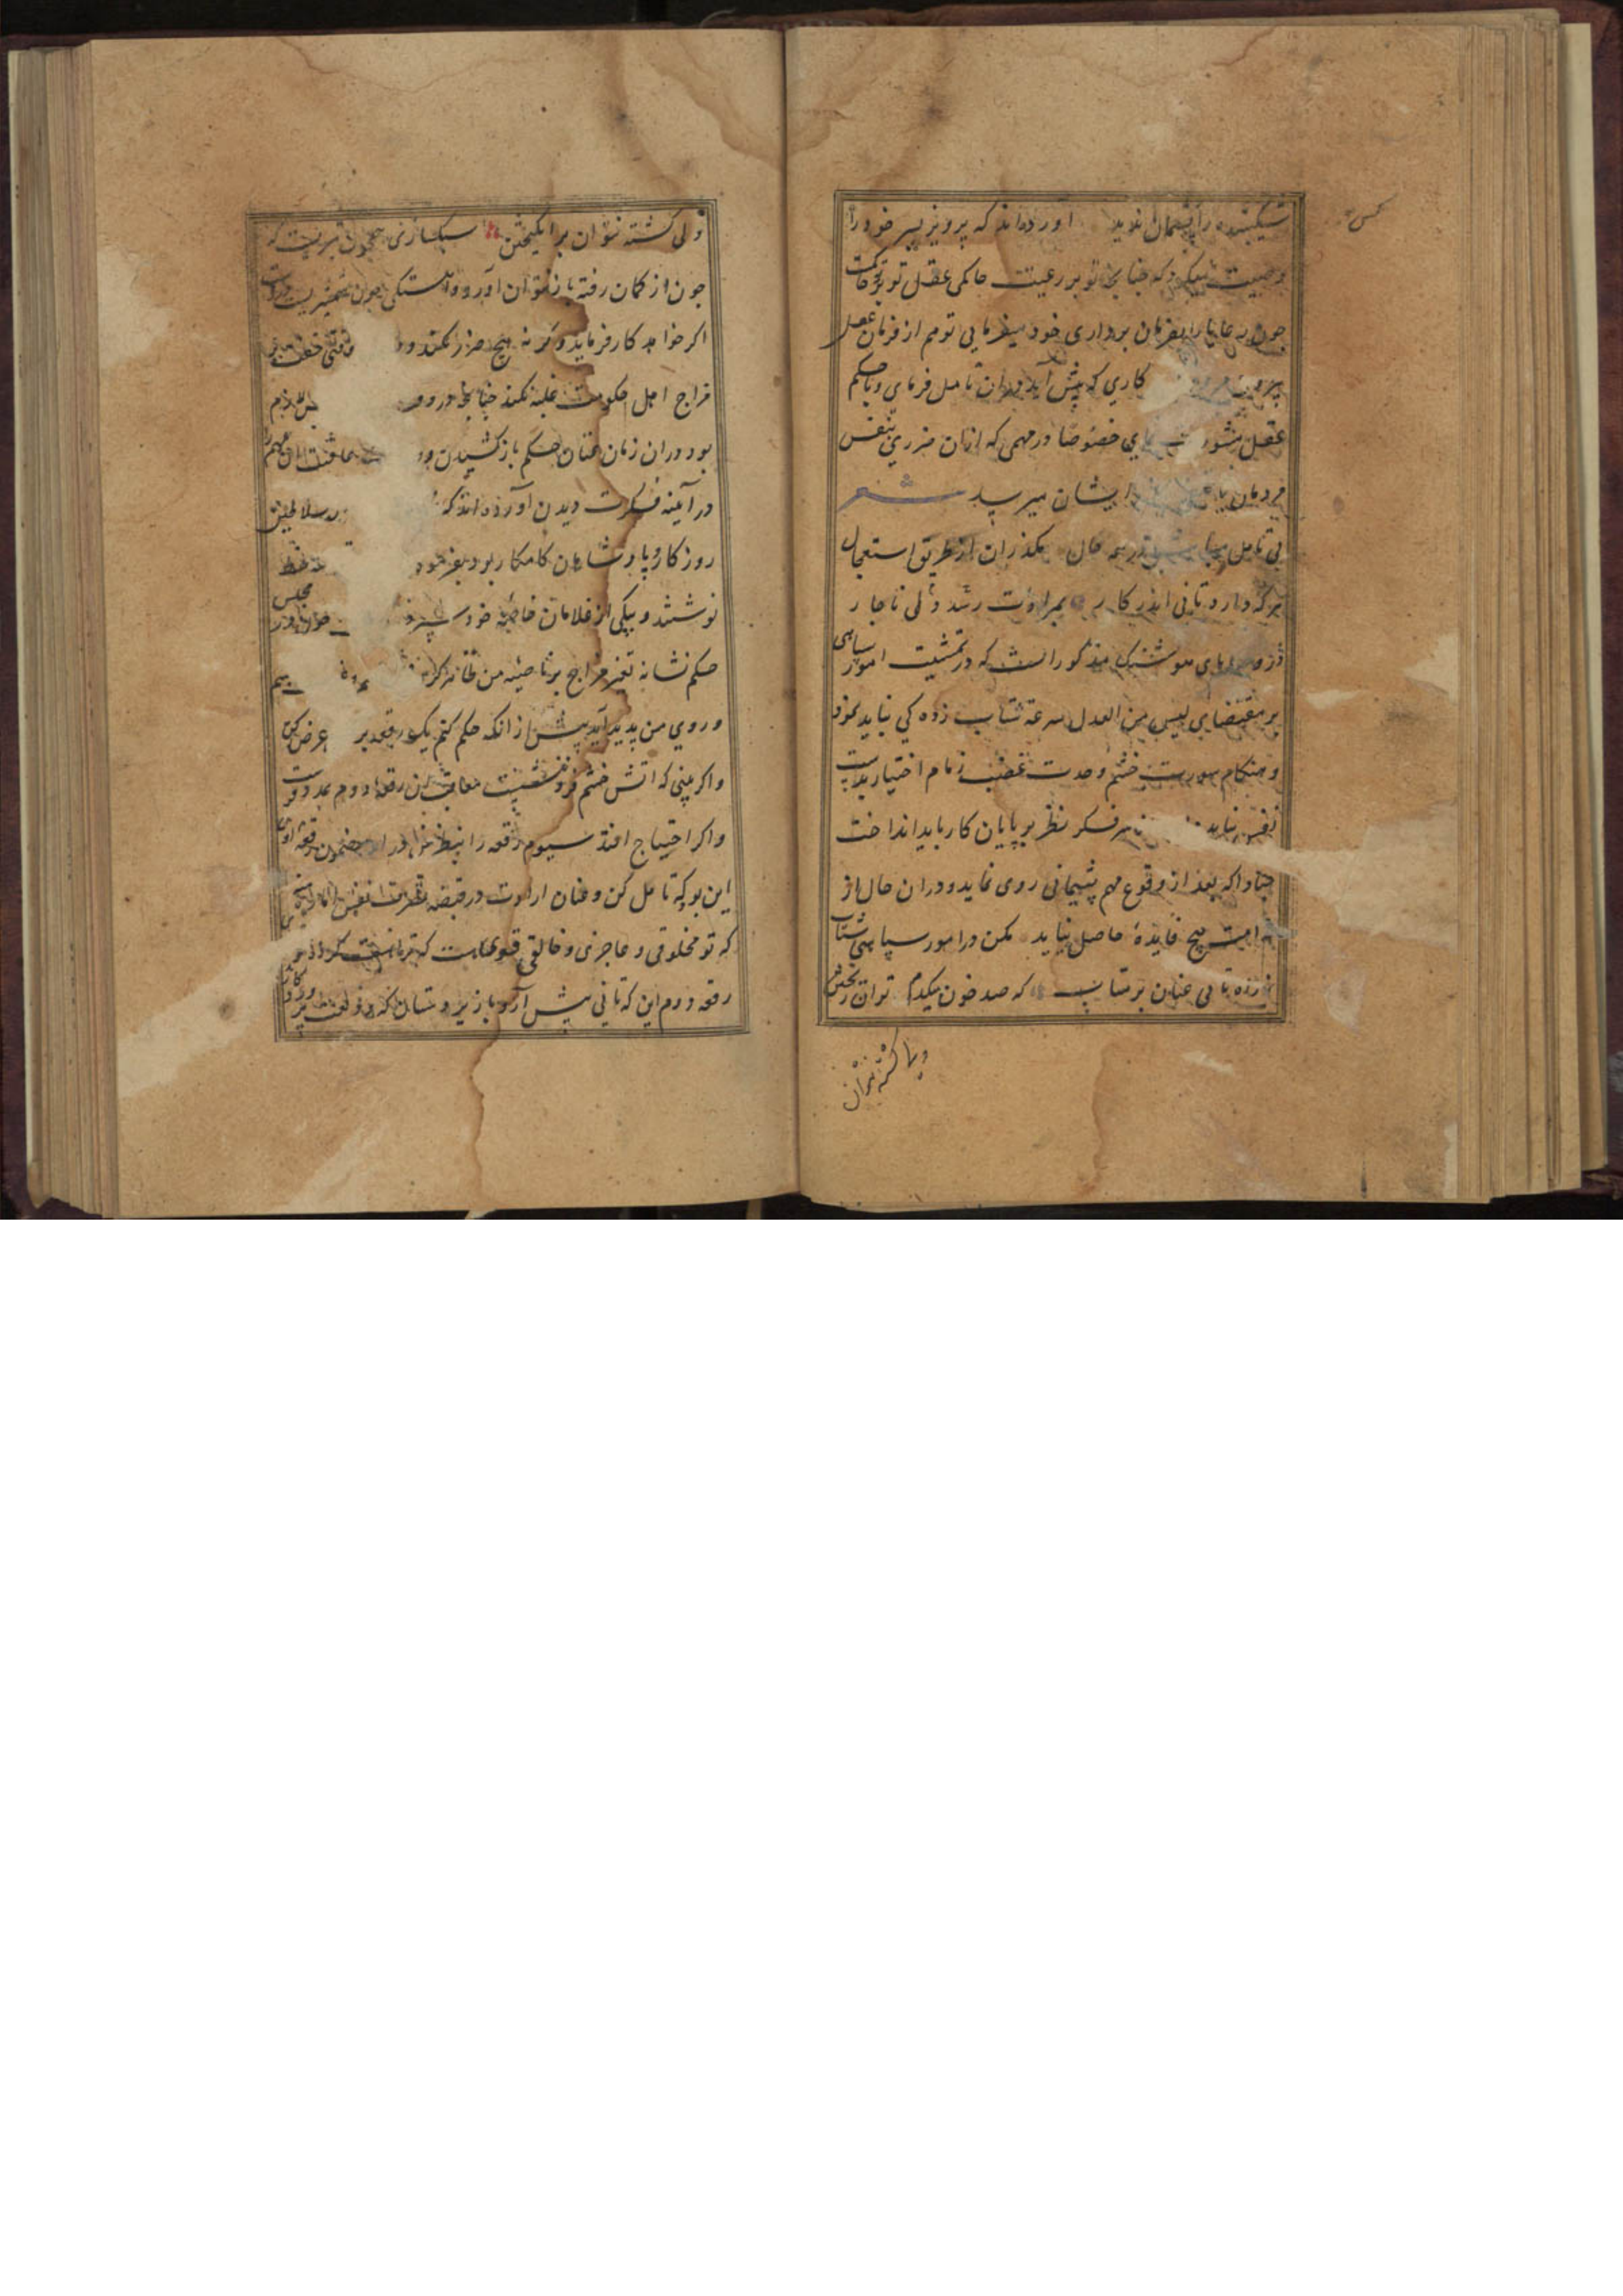 شکیبنده را پشیمان ندید اورده‌اند که پرویز پسر خود را
وصیت میکرد که چنانچه تو بر رعیت حاکمی عقل تو بر تو حاکمست
چون رعایا را بفرمان برداری خود میفرمایی تو هم از فرمان عقل
بیرون کاری که پیش آید دران تامل فرمای و با حکم
عقل مشورت نمای خصوصا در مهمی که ازان ضرری بنفس
مردمان یا ایشان میرسد شعر
بی تامل مباش در همه حال بگذران از طریق استعجال
هرکه دارد تانی اندر کار بمرادت رسد دلی ناچار
در های هوشنک مذکور است که در تمشیت امور سپاهی
بر مقتضای لیس من العدل سرعة شتاب زده کی نباید نمود
و هنکام سورت خشم و حدت غضب زمام اختیار بدست
نفس نباید فکر نظر بر پایان کار باید انداخت
مبادا که بعد از وقوع مهم پشیمانی روی نماید و دران حال از
ندامت هیچ فایدهٔ حاصل نیاید مکن در امور سپاهی شتاب
ز راه تانی عنان بر متاب که صد خون بیکدم توان ریختن
ولی کشته نتوان
ولی کشته نتوان بر انکیختن سبکساری همچون تیریست که
چون از کمان رفته باز نتوان آورد و اهستکی چون شمشیریست
اکر خواهد کار فرماید و کر نه هیچ ضرر نکند و وقتی خشم بر
مزاج اهل حکومت غلبه نکند چنانچه در
بود دران زمان عنان حکم باز کشیدن و عاقبت ان مهم
در آینه فکرت دیدن آورده‌اند که سلاطین
روزکار و پادشاهان کامکار بود بفرمود خط
نوشتند و بیکی از غلامان خاصهٔ خود سپرد مجلس
حکم نشانه تغیر مزاج بر ناصیه من ظاهر کردد
و روی من پدید آید پیش از انکه حکم کنم یک رقعه بر عرض کن
و اکر بینی که اتش خشم فرو ننشست معاقب ان رقعهٔ دوم
و اکر احتیاج افتد سیوم رقعه را بنظر من در آر مضمون رقعه اول
این بود که تامل کن و عنان ارادت در قبضه تصرف نفس اماره
که تو مخلوقی و عاجزی و خالقی قوی هست که
رقعه دوم این که تانی پیش آر و با زیردستان که